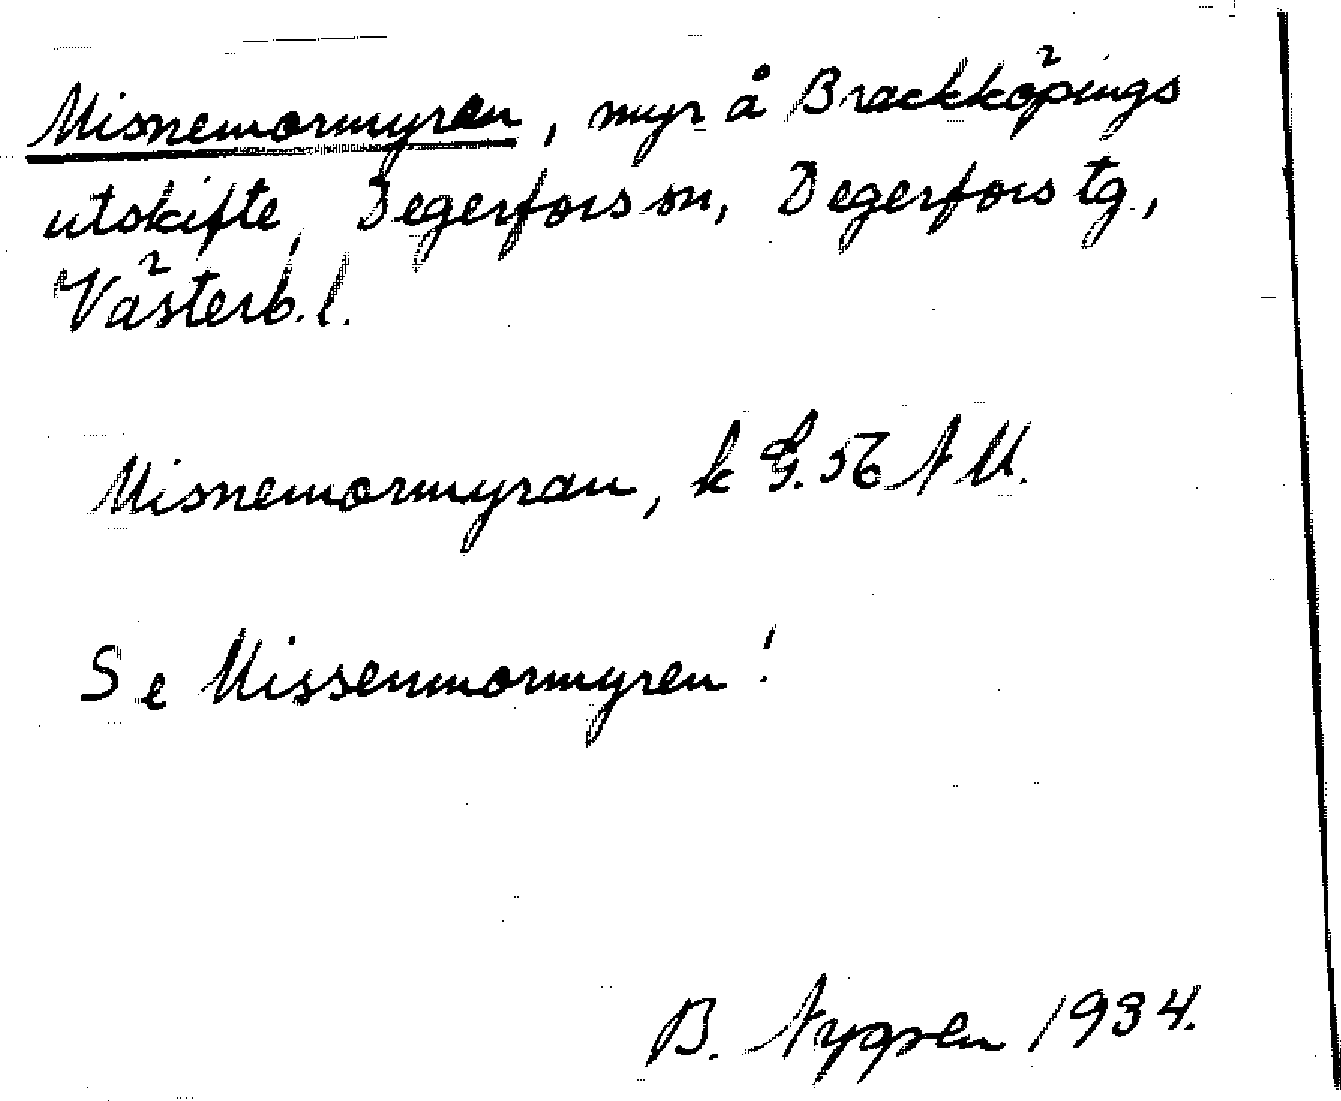 Misnemormyren, myr å Brackköpings
utskifte, Degerfors sn, Degerfors tg.,
Västerb. l.
Misnemormyran, k G. 56 A U.
Se Missenmormyren!
B. Nygren 1934.